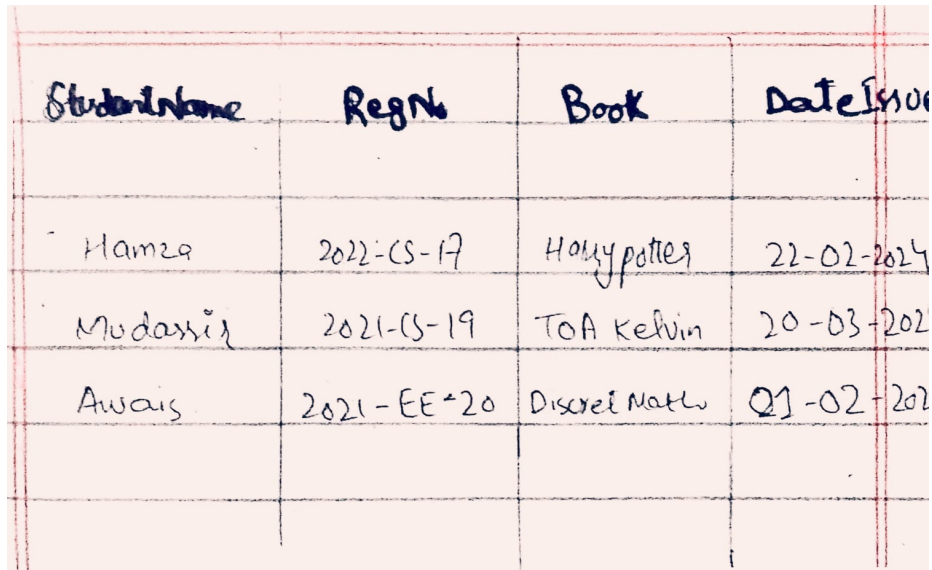 StudentName RegNo Book DateIssue
Hamza 2022-CS-17 Harrypotter 22-02-2024
Mudassir 2021-CS-19 TOA Kelvin 20-03-202
Awais 2021-EE-20 Discret Math 01-02-202